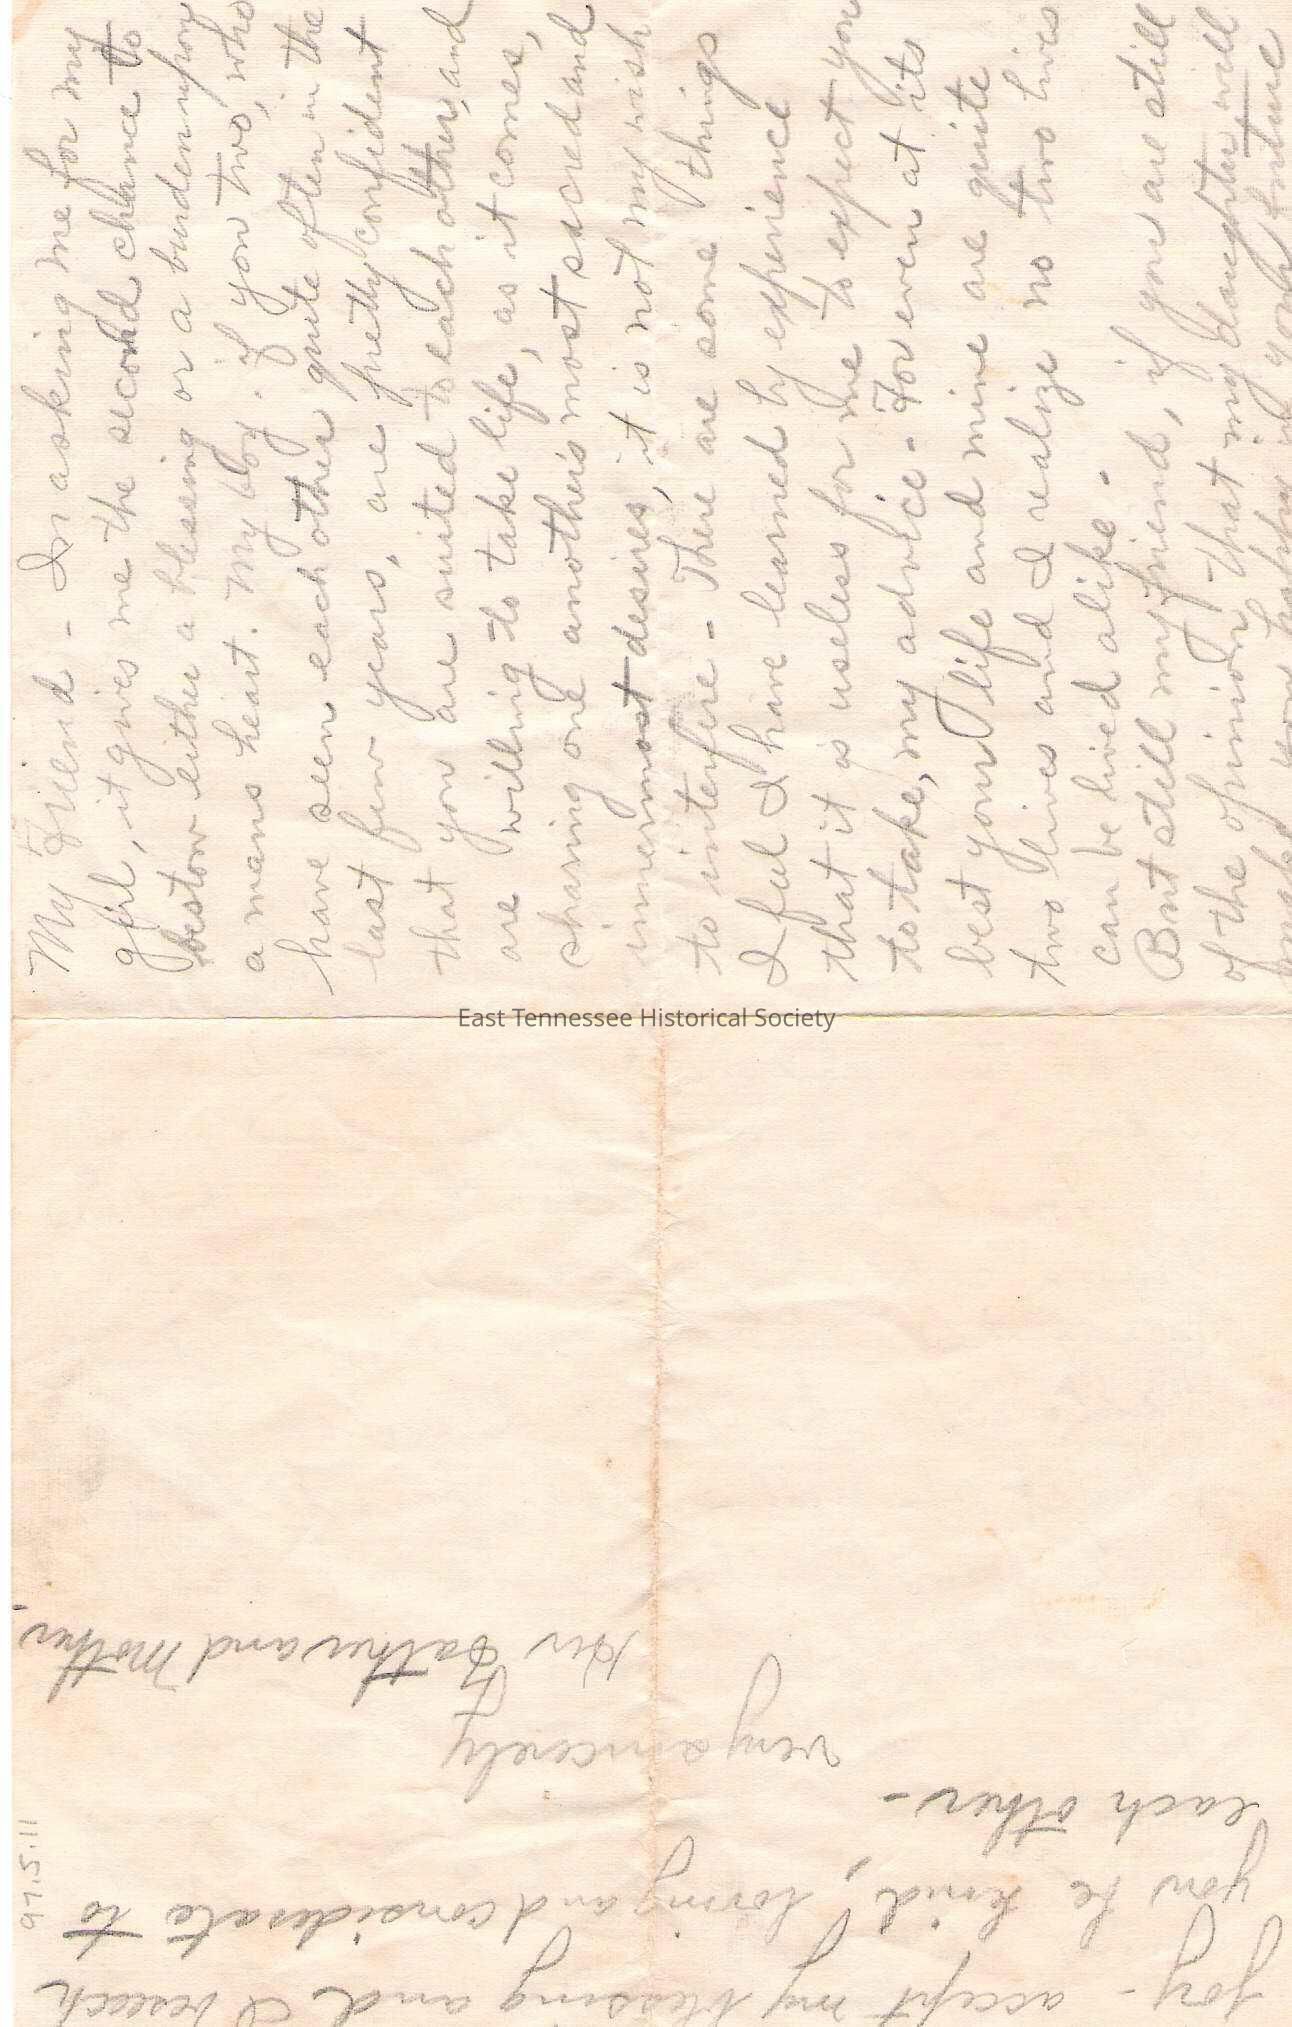 My Friend - In asking me for my
girl, it gives me the second chance to
bestow either a blessing or a burden upon
a mans heart. My boy. if you two, who
have seen each other quite often in the
last few years, are pretty confident
that you are suited to each other, and
are willing to take life, as it comes,
sharing one another's most sacred and
innermost desires, it is not my wish
to interfere - There are some things
I feel I have learned by experience
that it is useless for me to expect you
to take, my advice - For even at its
best your life and mine are quite
two lives and I realize no two lives
can be lived alike -
But still my friend, if you are still
of the opinion that my daughter will
make you happy in your future
joy - accept my blessing and I beseech
you be kind, loving and considerate to
each other -
very sincerely
Her Father and Mother.
97.5.11
East Tennessee Historical Society